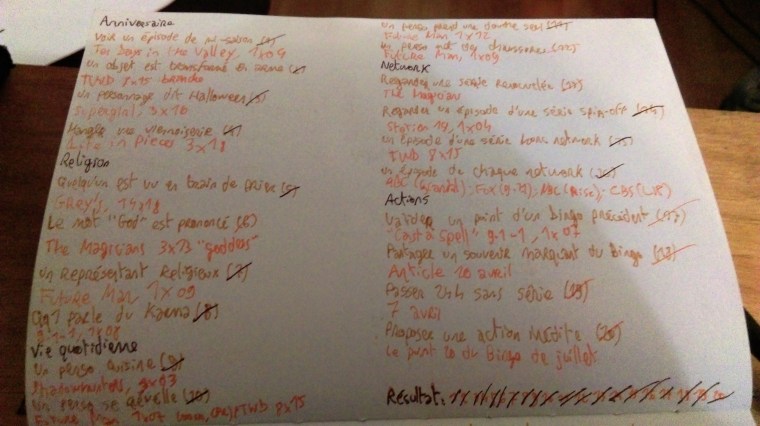 Anniversaire
Voir un épisode de mi-saison (1)
Ten Days in the Valley, 1x04
un objet est transformé en arme (2)
TWD 8x15 branche
un personnage dit Halloween (3)
Supergirl, 3x16
Manger une viennoiserie (4)
Life in Pieces 3x18
Religion
Quelqu'un est vu en train de prier (5)
Grey's, 14x18
Le mot "God" est prononcé (6)
The Magicians 3x13 "goddess"
un Représentant Religieux (7)
Future Man 1x09
parle du Karma (8)
9-1-1, 1x08
Vie quotidienne
un perso cuisine (9)
Shadowhunters, 3x03
un perso se réveille (10)
Future Man 1x07 TWD 8x15
un perso prend une douche seul (11)
Future Man 1x12
un perso met des chaussures (12)
Future Man, 1x09
Network
Regarder une série renouvelée (13)
The Magician
Regarder un épisode d'une série spin-off (14)
Station 19, 1x04
un épisode d'une série hors network (15)
TWD 8x15
un épisode de chaque network (16)
ABC (Scandal), Fox (9-1-1), CBS
Actions
Valider un point d'un bingo précédent (17)
"Cast a spell" 9-1-1, 1x07
Partager un souvenir marquant du Bingo (18)
Article 20 avril
Passer 24h sans série (19)
7 avril
Proposer une action inédite (20)
Le point 20 du bingo de juillet
Résultat: